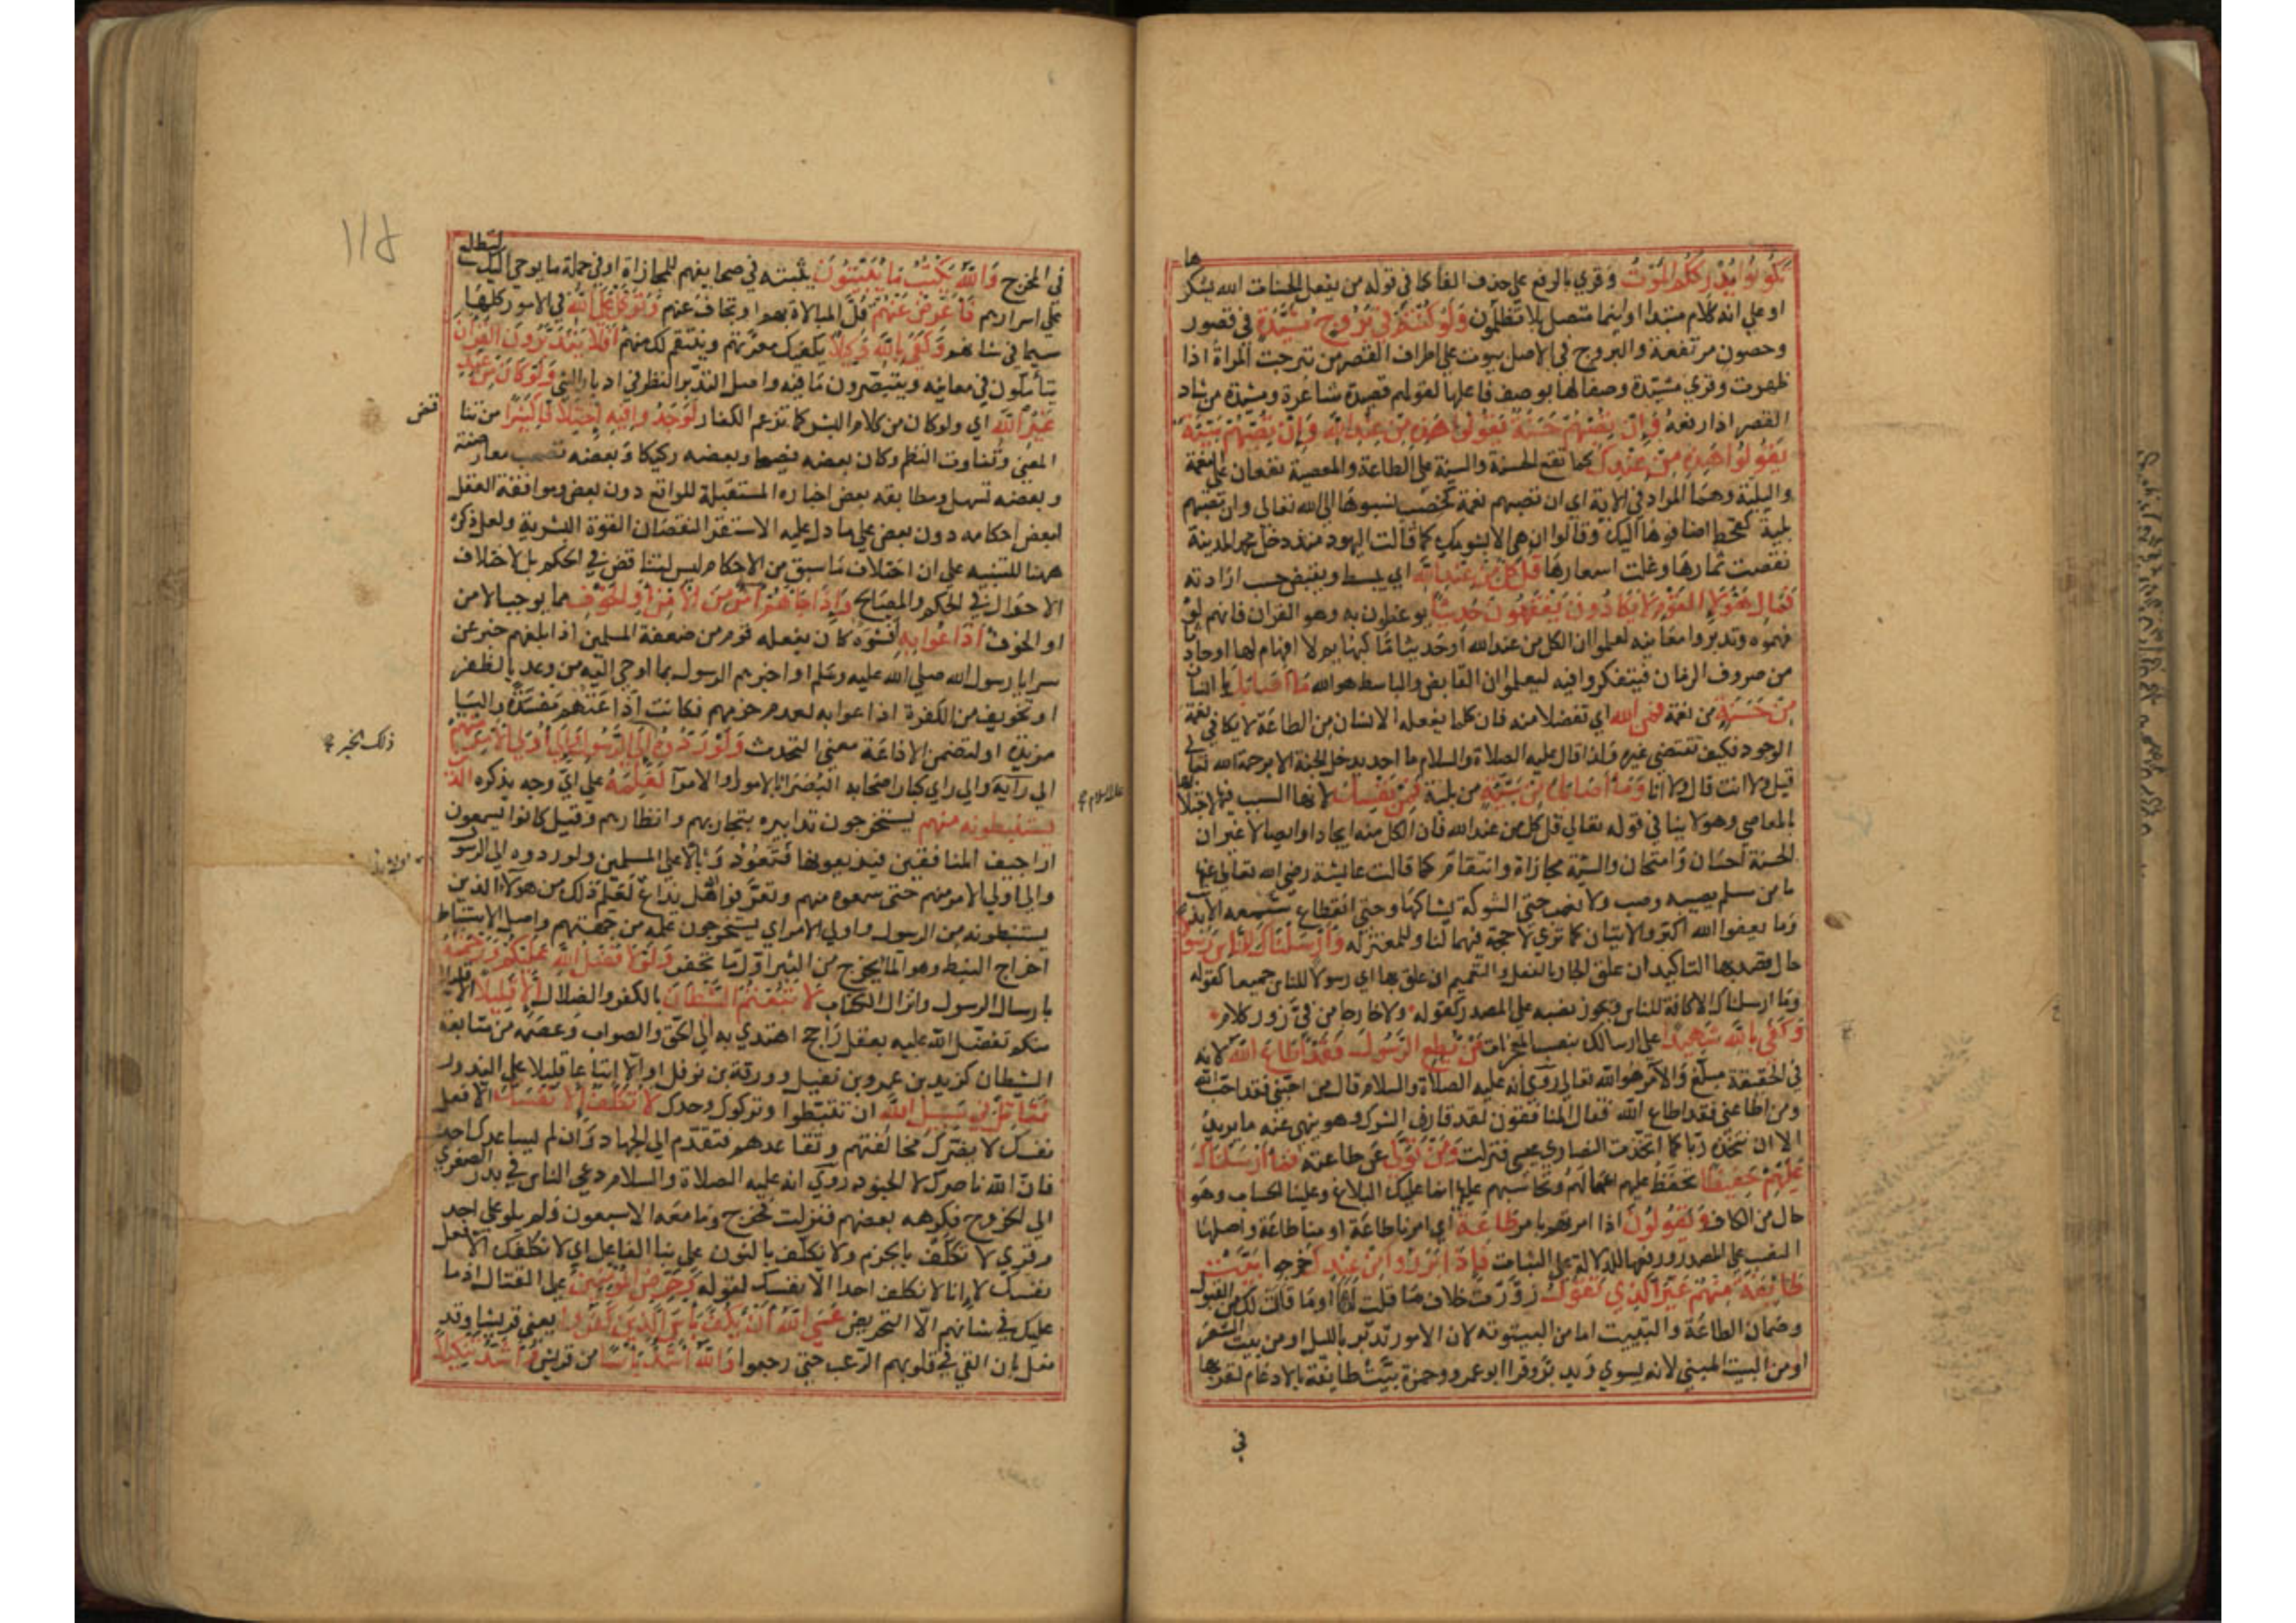 تكونوا يدرككم الموت وقري بالرفع على حذف الفا كما في قوله من يفعل الحسنات الله يشكرها
او على انه كلام مبتدا واينما متصل بلا تظلمون ولو كنتم في بروج مشيدة في قصور
وحصون مرتفعة والبروج في الاصل بيوت على اطراف القصر من تبرجت المراة اذا
ظهرت وقري مشيدة وصفا لها بوصف فاعلها كقولهم قصيدة شاعرة ومشيدة من شاد
القصر اذا رفعه وان تصبهم حسنة يقولوا هذه من عند الله وان تصبهم سيئة
يقولوا هذه من عندك كما تقع الحسنة والسيئة على الطاعة والمعصية تقعان على النعمة
والبلية وهما المراد في الاية اي ان تصبهم نعمة كخصب نسبوها الى الله تعالى وان تصبهم
بلية كقحط اضافوها اليك وقالوا ان هي الا بشومك كما قالت اليهود منذ دخل محمد المدينة
نقصت ثمارها وغلت اسعارها قل كل من عند الله اي يبسط ويقبض حسب ارادته
فمال هؤلا القوم لا يكادون يفقهون حديثا يوعظون به وهو القران فانهم لو
فهموه وتدبروا معانيه لعلموا ان الكل من عند الله او حديثا ما كبهايم لا افهام لها او حادثا
من صروف الزمان فيتفكروا فيه ليعلموا ان القابض والباسط هو الله ما اصابك يا انسان
من حسنة من نعمة فمن الله اي تفضلا منه فان كلما يفعله الانسان من الطاعة لا يكافي نعمة
الوجود فكيف تقتضي غيره ولذا قال عليه الصلاة والسلام ما احد يدخل الجنة الا برحمة الله تعالى
قيل ولا انت قال ولا انا وما اصابك من سيئة من بلية فمن نفسك لانها السبب فيها لاجتلابها
بالمعاصي وهو لا ينافي قوله تعالى قل كل من عند الله فان الكل منه ايجادا وايصالا غير ان
الحسنة احسان وامتحان والسيئة مجازاة وانتقام كما قالت عايشة رضي الله تعالى عنها
ما من مسلم يصيبه وصب ولا نصب حتى الشوكة يشاكها وحتى انقطاع شسعه الا بذنب
وما يعفوا الله اكثر والايتان كما ترى لا حجة فيهما لنا وللمعتزله وارسلناك للناس رسولا
حال قصد بها التاكيد ان علق الجار بالفعل والتعميم ان علق بها اي رسولا للناس جميعا كقوله
وما ارسلناك الا كافة للناس ويجوز نصبه على المصدر كقوله ولا خارجا من في زور كلام
وكفى بالله شهيدا على ارسالك بنصب المعجزات من يطع الرسول فقد اطاع الله لانه
في الحقيقة مبلغ والامر هو الله تعالى روي انه عليه الصلاة والسلام قال من احبني فقد احب الله
ومن اطاعني فقد اطاع الله فقال المنافقون لقد قارف الشرك وهو ينهى عنه ما يريد
الا ان نتخذه ربا كما اتخذت النصارى عيسى فنزلت ومن تولى عن طاعته فما ارسلناك
عليهم حفيظا تحفظ عليهم اعمالهم وتحاسبهم عليها انما عليك البلاغ وعلينا الحساب وهو
حال من الكاف ويقولون اذا امرتهم بامر طاعة اي امرنا طاعة او منا طاعة واصلها
النصب على المصدر ورفعها للدلالة على الثبات فاذا برزوا من عندك خرجوا بيت
طايفة منهم غير الذي تقول زورت خلاف ما قلت لها او ما قالت لك من القبول
وضمان الطاعة والتبييت اما من البيتوته لان الامور تدبر بالليل او من بيت الشعر
او من البيت المبني لانه يسوي ويدبر وقرا ابو عمرو وحمزة بيت طايفة بالادغام لقربها
في
في المخرج والله يكتب ما يبيتون يثبته في صحايفهم للمجازاة او في جملة ما يوحى اليك لتطلع
على اسرارهم فاعرض عنهم قلل المبالاة بهم او تجاف عنهم وتوكل على الله في الامور كلها
سيما في شانهم وكفى بالله وكيلا يكفيك معرتهم وينتقم لك منهم افلا يتدبرون القران
يتاملون في معانيه ويتبصرون ما فيه واصل التدبر النظر في ادبار الشي ولو كان من عند
غير الله اي ولو كان من كلام البشر كما تزعم الكفار لوجدوا فيه اختلافا كثيرا من تنا
قض
المعنى وتفاوت النظم وكان بعضه فصيحا وبعضه ركيكا وبعضه تصعب معارضته
وبعضه تسهل ومطابقه بعض اخباره المستقبلة للواقع دون بعض وموافقة العقل
لبعض احكامه دون بعض على ما دل عليه الاستقرا لنقصان القوة البشرية ولعل ذكره
ههنا للتنبيه على ان اختلاف ما سبق من الاحكام ليس لتناقض في الحكم بل لاختلاف
الاحوال في الحكم والمصالح واذا جاهم امر من الامن او الخوف مما يوجب الامن
او الخوف اذاعوا به افشوه كان يفعله قوم من ضعفة المسلمين اذا بلغهم خبر عن
سرايا رسول الله صلى الله عليه وسلم او اخبرهم الرسول بما اوحي اليه من وعد بالظفر
او تخويف من الكفرة اذاعوا به لعدم حزمهم فكانت اذاعتهم مفسدة والبا
مزيدة او لتضمن الاذاعة معنى التحدث ولو ردوه الى الرسول والى اولي الامر منهم
ذلك الخبر
الى رايه والى راي كبار اصحابه البصرا بالامور او الامرا لعلمه على اي وجه يذكره الذين
عليه السلام
يستنبطونه منهم يستخرجون تدابيره بتجاربهم وانظارهم وقيل كانوا يسمعون
اراجيف المنافقين فيذيعونها فتعود وبالا على المسلمين ولو ردوه الى الرسول
والى اولي الامر منهم حتى سمعوه منهم وتعرفوا هل يذاع لعلم ذلك من هؤلا الذين
يستنبطونه من الرسول واولي الامر اي يستخرجون علمه من جهتهم واصل الاستنباط
اخراج النبط وهو الما يخرج من البير اول ما تحفر ولولا فضل الله عليكم ورحمته
بارسال الرسول وانزال الكتاب لاتبعتم الشيطان بالكفر والضلال الا قليلا الا قليلا
منكم تفضل الله عليه بعقل راجح اهتدى به الى الحق والصواب وعصمه من متابعة
الشيطان كزيد بن عمرو بن نفيل وورقة بن نوفل او الا اتباعا قليلا على الندور
فقاتل في سبيل الله ان تثبطوا وتركوك وحدك لا تكلف الا نفسك الا فعل
نفسك لا يضرك مخالفتهم وتقاعدهم فتقدم الى الجهاد وان لم يساعدك احد
فان الله ناصرك لا الجنود روي انه عليه الصلاة والسلام دعى الناس في بدر الصغرى
الى الخروج فكرهه بعضهم فنزلت فخرج وما معه الا سبعون ولم يلو على احد
وقري لا تكلف بالجزم ولا نكلف بالنون على بنا الفاعل اي لا نكلفك الا فعل
نفسك لا انا لا نكلف احدا الا نفسك لقوله وحرض المؤمنين على القتال اذ ما
عليك في شانهم الا التحريض عسى الله ان يكف باس الذين كفروا يعني قريشا وقد
فعل بان القى في قلوبهم الرعب حتى رجعوا والله اشد باسا من قريش واشد تنكيلا